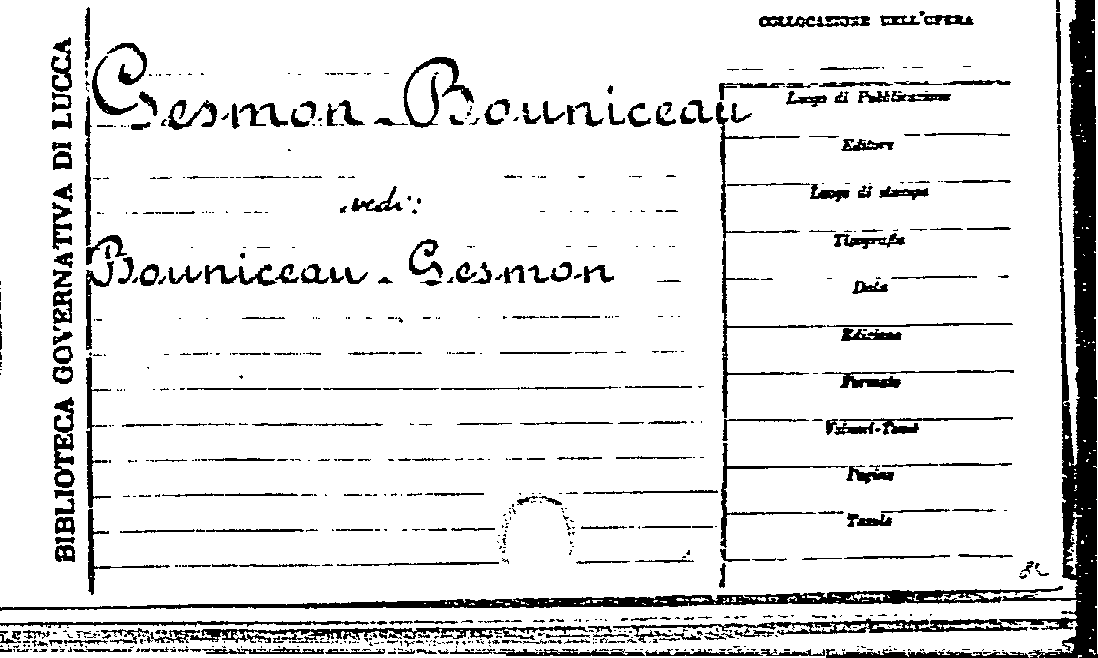 BIBLIOTECA GOVERNATIVA DI LUCCA
COLLOCAZIONE DELL'OPERA
Gesmon - Bouniceau
vedi:
Bouniceau - Gesmon
Luogo di Pubblicazione
Editore
Luogo di stampa
Tipografia
Data
Edizione
Formato
Volumi-Tomi
Pagine
Tavole